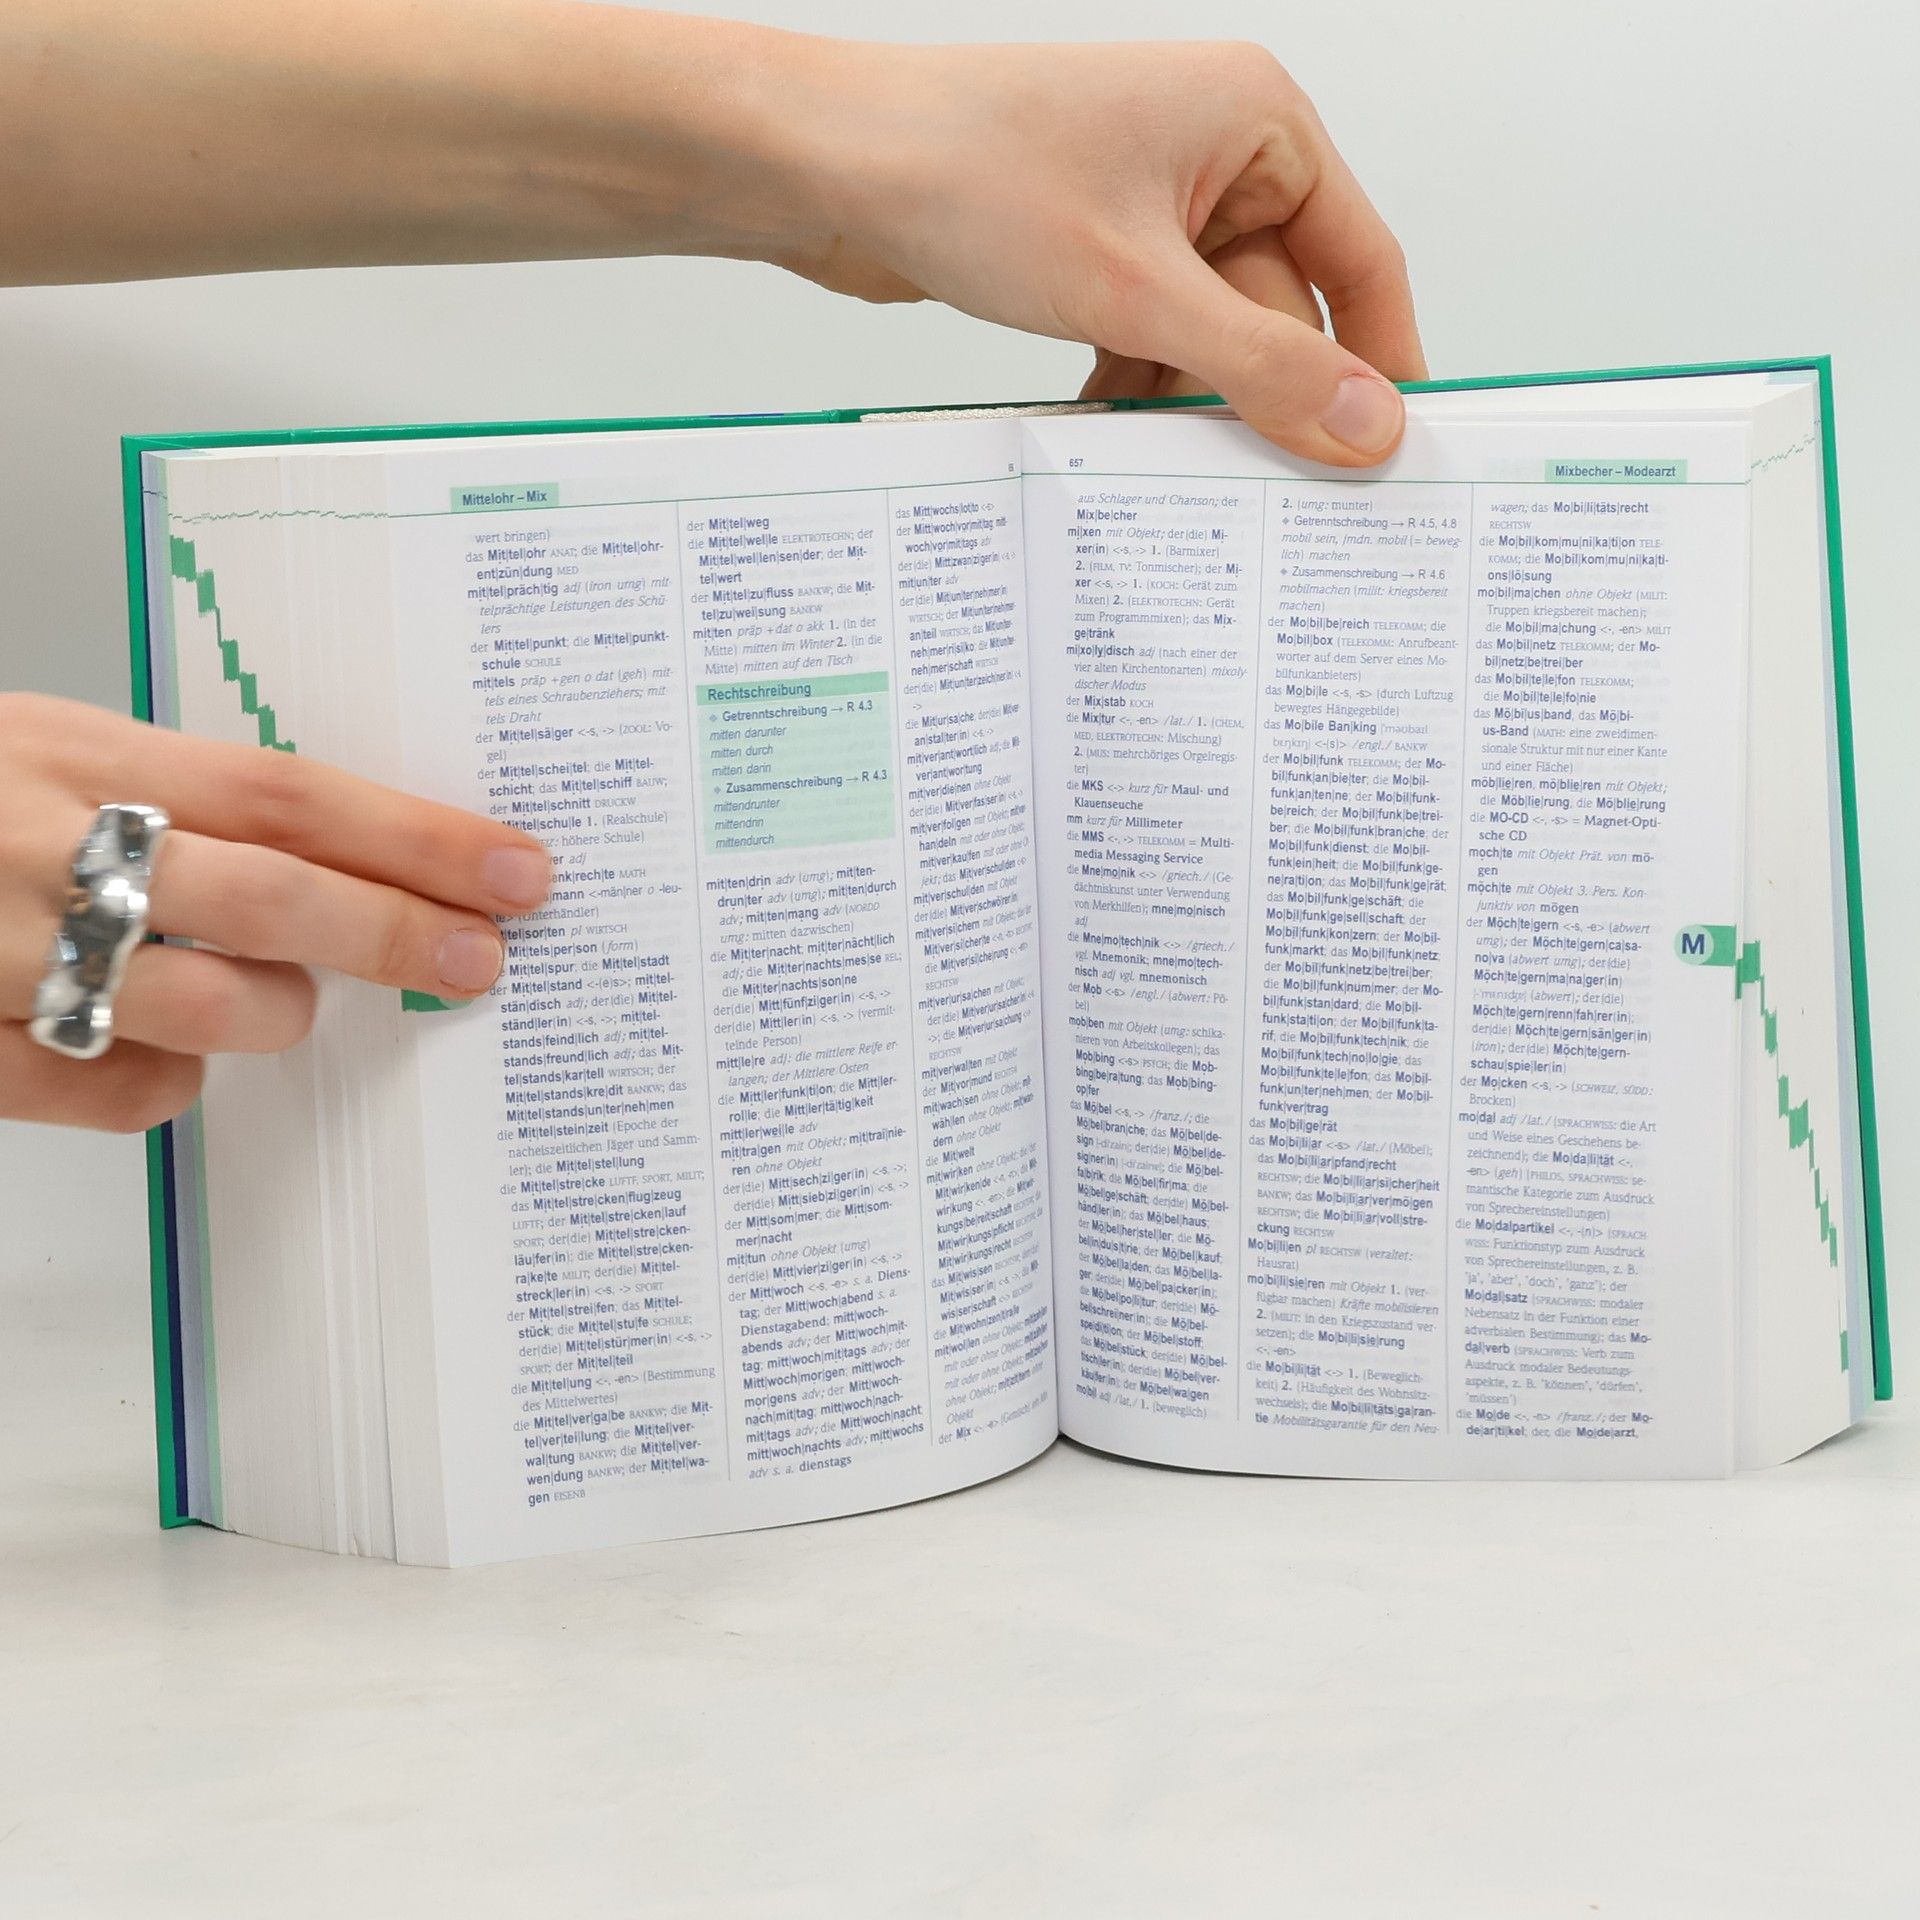 Mittelohr – Mix
wert bringen)
das Mit|tel|ohr ANAT; die Mit|tel|ohr-
ent|zün|dung MED
mit|tel|präch|tig adj (iron umg) mit-
telprächtige Leistungen des Schü-
lers
der Mit|tel|punkt; die Mit|tel|punkt-
schule SCHULE
mit|tels präp +gen o dat (geh) mit-
tels eines Schraubenziehers; mit-
tels Draht
der Mit|tel|sä|ger <-s, -> (ZOOL: Vo-
gel)
der Mit|tel|schei|tel; die Mit|tel-
schicht; das Mit|tel|schiff BAUW;
der Mit|tel|schnitt DRUCKW
Mit|tel|schu|le 1. (Realschule)
höhere Schule)
adj
MATH
<-män|ner o -leu-
(Unterhändler)
pl WIRTSCH
Mit|tels|per|son (form)
Mit|tel|spur; die Mit|tel|stadt
der Mit|tel|stand <-(e)s>; mit|tel-
stän|disch adj; der(die) Mit|tel-
ständ|ler(in) <-s, ->; mit|tel-
stands|feind|lich adj; mit|tel-
stands|freund|lich adj; das Mit-
tel|stands|kar|tell WIRTSCH; der
Mit|tel|stands|kre|dit BANKW; das
Mit|tel|stands|un|ter|neh|men
die Mit|tel|stein|zeit (Epoche der
nacheiszeitlichen Jäger und Samm-
ler); die Mit|tel|stel|lung
die Mit|tel|stre|cke LUFTF, SPORT, MILIT;
das Mit|tel|stre|cken|flug|zeug
LUFTF; der Mit|tel|stre|cken|lauf
SPORT; der(die) Mit|tel|stre|cken-
läu|fer(in); die Mit|tel|stre|cken-
ra|ke|te MILIT; der(die) Mit|tel-
streck|ler(in) <-s, -> SPORT
der Mit|tel|strei|fen; das Mit|tel-
stück; die Mit|tel|stu|fe SCHULE;
der(die) Mit|tel|stür|mer(in) <-s, ->
SPORT; der Mit|tel|teil
die Mit|te|lung <-, -en> (Bestimmung
des Mittelwertes)
die Mit|tel|ver|ga|be BANKW; die Mit-
tel|ver|tei|lung; die Mit|tel|ver-
wal|tung BANKW; die Mit|tel|ver-
wen|dung BANKW; der Mit|tel|wa-
gen EISENB
der Mit|tel|weg
die Mit|tel|wel|le ELEKTROTECHN; der
Mit|tel|wel|len|sen|der; der Mit-
tel|wert
der Mit|tel|zu|fluss BANKW; die Mit-
tel|zu|wei|sung BANKW
mit|ten präp +dat o akk 1. (in der
Mitte) mitten im Winter 2. (in die
Mitte) mitten auf den Tisch
Rechtschreibung
Getrenntschreibung → R 4.3
mitten darunter
mitten durch
mitten darin
Zusammenschreibung → R 4.3
mittendrunter
mittendrin
mittendurch
mit|ten|drin adv (umg); mit|ten-
drun|ter adv (umg); mit|ten|durch
adv; mit|ten|mang adv (NORDD
umg: mitten dazwischen)
die Mit|ter|nacht; mit|ter|nächt|lich
adj; die Mit|ter|nachts|mes|se REL;
die Mit|ter|nachts|son|ne
der(die) Mitt|fünf|zi|ger(in) <-s, ->
der(die) Mitt|ler(in) <-s, -> (vermit-
telnde Person)
mitt|le|re adj: die mittlere Reife er-
langen; der Mittlere Osten
die Mitt|ler|funk|ti|on; die Mitt|ler-
rol|le; die Mitt|ler|tä|tig|keit
mitt|ler|wei|le adv
mit|tra|gen mit Objekt; mit|trai|nie-
ren ohne Objekt
der(die) Mitt|sech|zi|ger(in) <-s, ->;
der(die) Mitt|sieb|zi|ger(in) <-s, ->
der Mitt|som|mer; die Mitt|som-
mer|nacht
mit|tun ohne Objekt (umg)
der(die) Mitt|vier|zi|ger(in) <-s, ->
der Mitt|woch <-s, -e> s. a. Diens-
tag; der Mitt|woch|abend s. a.
Dienstagabend; mitt|woch-
abends adv; der Mitt|woch|mit-
tag; mitt|woch|mit|tags adv; der
Mitt|woch|mor|gen; mitt|woch-
mor|gens adv; der Mitt|woch-
nach|mit|tag; mitt|woch|nach-
mit|tags adv; die Mitt|woch|nacht
mitt|woch|nachts adv; mitt|wochs
adv s. a. dienstags
das Mitt|wochs|lot|to
der Mitt|woch|vor|mit|tag mitt-
woch|vor|mit|tags adv
der(die) Mitt|zwan|zi|ger(in)
mit|un|ter adv
der(die) Mit|un|ter|neh|mer|in
WIRTSCH; der Mit|un|ter|neh|mer-
an|teil WIRTSCH; das Mit|un|ter-
neh|mer|ri|si|ko; die Mit|un|ter-
neh|mer|schaft WIRTSCH
der(die) Mit|un|ter|zeich|ner|in
die Mit|ur|sa|che; der(die) Mit|ver-
an|stal|ter(in) <-s, ->
mit|ver|ant|wort|lich adj; die Mit-
ver|ant|wor|tung
mit|ver|die|nen ohne Objekt
der(die) Mit|ver|fas|ser in
mit|ver|fol|gen mit Objekt; mit|ver-
han|deln mit oder ohne Objekt
mit|ver|kau|fen mit oder ohne O
jekt; das Mit|ver|schul|den
mit|ver|schul|den mit Objekt
der(die) Mit|ver|schwö|rer in
mit|ver|si|chern mit Objekt;
die Mit|ver|si|che|rung
RECHTSW
mit|ver|ur|sa|chen mit Objekt;
der(die) Mit|ver|ur|sa|cher in
->; die Mit|ver|ur|sa|chung
RECHTSW
mit|ver|wal|ten mit Objekt
der Mit|vor|mund RECHTSW
mit|wach|sen ohne Objekt; mit-
wäh|len ohne Objekt;
dern ohne Objekt
die Mit|welt
mit|wir|ken ohne Objekt;
wir|kung
kungs|be|reit|schaft
Mit|wir|kungs|pflicht
Mit|wir|kungs|recht
das Mit|wis|sen
Mit|wis|ser in
wis|ser|schaft
die Mit|wohn|zen|tra|le
mit|wol|len ohne Objekt
Objekt
der Mix
657
Mixbecher – Modearzt
aus Schlager und Chanson; der
Mix|be|cher
mi|xen mit Objekt; der(die) Mi-
xer(in) <-s, -> 1. (Barmixer)
2. (FILM, TV: Tonmischer); der Mi-
xer <-s, -> 1. (KOCH: Gerät zum
Mixen) 2. (ELEKTROTECHN: Gerät
zum Programmmixen); das Mix-
ge|tränk
mi|xo|ly|disch adj (nach einer der
vier alten Kirchentonarten) mixoly-
discher Modus
der Mix|stab KOCH
die Mix|tur <-, -en> /lat./ 1. (CHEM,
MED, ELEKTROTECHN: Mischung)
2. (MUS: mehrchöriges Orgelregis-
ter)
die MKS <-> kurz für Maul- und
Klauenseuche
mm kurz für Millimeter
die MMS <-, -> TELEKOMM = Multi-
media Messaging Service
die Mne|mo|nik <-> /griech./ (Ge-
dächtniskunst unter Verwendung
von Merkhilfen); mne|mo|nisch
adj
die Mne|mo|tech|nik <-> /griech./
vgl. Mnemonik; mne|mo|tech-
nisch adj vgl. mnemonisch
der Mob <-s> /engl./ (abwert: Pö-
bel)
mob|ben mit Objekt (umg: schika-
nieren von Arbeitskollegen); das
Mob|bing <-s> PSYCH; die Mob-
bing|be|ra|tung; das Mob|bing-
op|fer
das Mö|bel <-s, -> /franz./; die
Mö|bel|bran|che; das Mö|bel|de-
sign; der(die) Mö|bel|de-
si|gner|in); die Mö|bel-
fa|brik; die Mö|bel|fir|ma; die
Mö|bel|ge|schäft; der(die) Mö|bel-
händ|ler|in); das Mö|bel|haus;
der Mö|bel|her|stel|ler; die Mö-
bel|in|dus|trie; der Mö|bel|kauf;
der Mö|bel|la|den; das Mö|bel|la-
ger; der(die) Mö|bel|pa|cker(in);
die Mö|bel|po|li|tur; der(die) Mö-
bel|schrei|ner(in); die Mö|bel-
spe|di|ti|on; der Mö|bel|stoff;
das Mö|bel|stück; der(die) Mö|bel-
tisch|ler|in); der(die) Mö|bel|ver-
käu|fer|in); der Mö|bel|wa|gen
mo|bil adj /lat./ 1. (beweglich)
2. (umg: munter)
Getrenntschreibung → R 4.5, 4.8
mobil sein, jmdn. mobil (= beweg-
lich) machen
Zusammenschreibung → R 4.6
mobilmachen (milit: kriegsbereit
machen)
der Mo|bil|be|reich TELEKOMM; die
Mo|bil|box (TELEKOMM: Anrufbeant-
worter auf dem Server eines Mo-
bilfunkanbieters)
das Mo|bi|le <-s, -s> (durch Luftzug
bewegtes Hängegebilde)
das Mo|bile Ban|king
<-(s)> /engl./ BANKW
der Mo|bil|funk TELEKOMM; der Mo-
bil|funk|an|bie|ter; die Mo|bil-
funk|an|ten|ne; der Mo|bil|funk-
be|reich; der Mo|bil|funk|be|trei-
ber; die Mo|bil|funk|bran|che; der
Mo|bil|funk|dienst; die Mo|bil-
funk|ein|heit; die Mo|bil|funk|ge-
ne|ra|ti|on; das Mo|bil|funk|ge|rät;
das Mo|bil|funk|ge|schäft; die
Mo|bil|funk|ge|sell|schaft; der
Mo|bil|funk|kon|zern; der Mo|bil-
funk|markt; das Mo|bil|funk|netz;
der Mo|bil|funk|netz|be|trei|ber;
die Mo|bil|funk|num|mer; der Mo-
bil|funk|stan|dard; die Mo|bil-
funk|sta|ti|on; der Mo|bil|funk|ta-
rif; die Mo|bil|funk|tech|nik; die
Mo|bil|funk|tech|no|lo|gie; das
Mo|bil|funk|te|le|fon; das Mo|bil-
funk|un|ter|neh|men; der Mo|bil-
funk|ver|trag
das Mo|bil|ge|rät
das Mo|bi|li|ar <-s> /lat./ (Möbel);
das Mo|bi|li|ar|pfand|recht
RECHTSW; die Mo|bi|li|ar|si|cher|heit
BANKW; das Mo|bi|li|ar|ver|mö|gen
RECHTSW; die Mo|bi|li|ar|voll|stre-
ckung RECHTSW
Mo|bi|li|en pl RECHTSW (veraltet:
Hausrat)
mo|bi|li|sie|ren mit Objekt 1. (ver-
fügbar machen) Kräfte mobilisieren
2. (MILIT: in den Kriegszustand ver-
setzen); die Mo|bi|li|sie|rung
<-, -en>
die Mo|bi|li|tät <-> 1. (Beweglich-
keit) 2. (Häufigkeit des Wohnsitz-
wechsels); die Mo|bi|li|täts|ga|ran-
tie Mobilitätsgarantie für den Neu-
wagen; das Mo|bi|li|täts|recht
RECHTSW
die Mo|bil|kom|mu|ni|ka|ti|on TELE-
KOMM; die Mo|bil|kom|mu|ni|ka|ti-
ons|lö|sung
mo|bil|ma|chen ohne Objekt (MILIT:
Truppen kriegsbereit machen);
die Mo|bil|ma|chung <-, -en> MILIT
das Mo|bil|netz TELEKOMM; der Mo-
bil|netz|be|trei|ber
das Mo|bil|te|le|fon TELEKOMM;
die Mo|bil|te|le|fo|nie
das Mö|bi|us|band, das Mö|bi-
us-Band (MATH: eine zweidimen-
sionale Struktur mit nur einer Kante
und einer Fläche)
möb|lie|ren, möbl|ie|ren mit Objekt;
die Möb|lie|rung, die Möbl|ie|rung
die MO-CD <-, -s> = Magnet-Opti-
sche CD
moch|te mit Objekt Prät. von mö-
gen
möch|te mit Objekt 3. Pers. Kon-
junktiv von mögen
der Möch|te|gern <-s, -e> (abwert
umg); der Möch|te|gern|ca|sa-
no|va (abwert umg); der(die)
Möch|te|gern|ma|na|ger(in)
(abwert); der(die)
Möch|te|gern|renn|fah|rer(in);
der(die) Möch|te|gern|sän|ger(in)
(iron); der(die) Möch|te|gern-
schau|spie|ler(in)
der Mo|cken <-s, -> (SCHWEIZ, SÜDD:
Brocken)
mo|dal adj /lat./ (SPRACHWISS: die Art
und Weise eines Geschehens be-
zeichnend); die Mo|da|li|tät <-,
-en> (geh) (PHILOS, SPRACHWISS: se-
mantische Kategorie zum Ausdruck
von Sprechereinstellungen)
die Mo|dalpartikel <-, -(n)> (SPRACH-
WISS: Funktionstyp zum Ausdruck
von Sprechereinstellungen, z. B.
'ja', 'aber', 'doch', 'ganz'); der
Mo|dal|satz (SPRACHWISS: modaler
Nebensatz in der Funktion einer
adverbialen Bestimmung); das Mo-
dal|verb (SPRACHWISS: Verb zum
Ausdruck modaler Bedeutungs-
aspekte, z. B. 'können', 'dürfen',
'müssen')
die Mo|de <-, -n> /franz./; der Mo-
de|ar|ti|kel; der, die Mo|de|arzt,
M